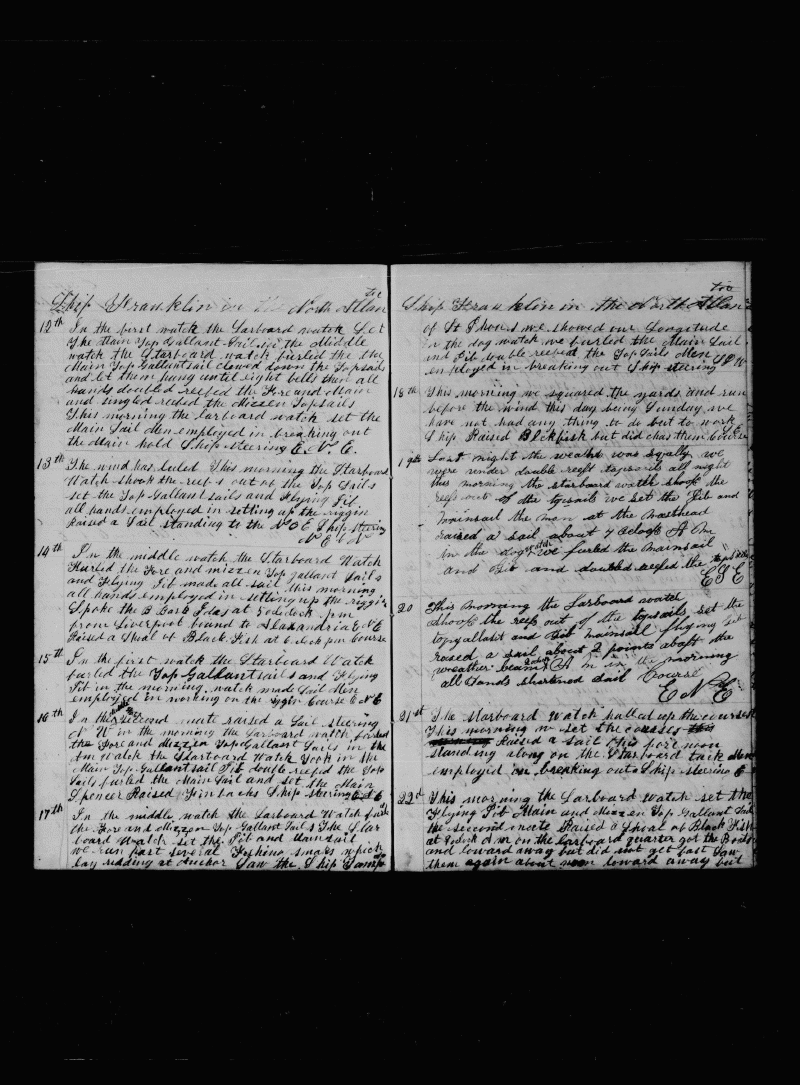 tic
Ship Franklin in the North Atlan
12th In the first watch the Larboard watch Set
The Main Top Gallant Sail in the Middle
watch the Starboard watch furled the the
Main Top Gallantsail clewed down the Topsails
and let them hang until eight bells then all
hands doubled reefed the Fore and Main
and singled reefed the Mizzen Topsails
This morning the larboard watch set the
Main Sail Men employed in breaking out
the Main hold Ship steering E. N. E.
13th The wind has luled This morning the Starboard
Watch shook the reefs out of the Top Sails
set the Top Gallant sails and Flying Jib
all hands employed in setting up the riggin
Raised a Sail standing to the Ship Stering
N E b N
14th In the middle watch the Starboard Watch
Furled the Fore and mizzen Top gallant Sails
and Flying Jib made all sail this morning
all hands employed in setting up the riggin
Spoke the B at 5 oclock pm
from Liverpool bound to Alaxandria E N E
Raised a Shoal of Black Fish at 6 oclock pm Course
15th In the first watch the Starboard Watch
furled the Top Gallantsails and Flying
Jib in the morning watch made Sail Men
employed in working on the riggin Course E N E
16th In the second mate raised a Sail steering
N W in the morning the Larboard watch furled
the Fore and Mizzen Top Gallant Sails in the
Am Watch the Starboard Watch Took in the
Main Top Gallantsail Jib double reefed the Top
Sails furled the Main Sail and set the Main
Spencer Raised Finbacks Ship stering E b E
17th In the middle watch the Larboard Watch furled
the Fore and Mizzen Top Gallant Sails The Star
board Watch set the Jib and Mainsail
we run past several Fishing smaks which
lay ridding at Anchor Saw the Ship
tic
Ship Franklin in the North Atlan
of St we showed our Longitude
in the dog watch we furled the Main Sail
and Jib double reefed the Top Sails Men
employed in breaking out Ship steering
18th This morning we squared the yards and run
before the wind this day being Sunday we
have not had any thing to do but to work
Ship Raised Blckfish but did chas them Course
19th Last night the weather was squally we
were under double reeft topsails all night
this morning the starboard watch shook the
reefs out of the topsails we set the Jib and
mainsail the man at the masthead
raised a sail about 4 oclock A m
in the dog watch we furled the mainsail
and Jib and doubled reefed the topsails
E S E
20 This morning the Larboard watch
shook the reefs out of the topsails set the
topgallant and Jib mainsail flying set
raised a sail about 2 points abaft the
weather beam A m in the morning
all hands shortened sail Course
E N E
21st The starboard watch hulled up the courses
This morning we set the courses
Raised a sail this fore noon
standing along on the Starboard tack Men
employed in breaking out Ship steering E
22d This morning the Larboard watch set the
Flying Jib Main and Mizzen Top Gallant Sails
the second mate Raised a Shoal of Black Fish
at oclock A m on the Larboard quarter got the Boats
and loward away but did not get fast Saw
them again about noon loward away but